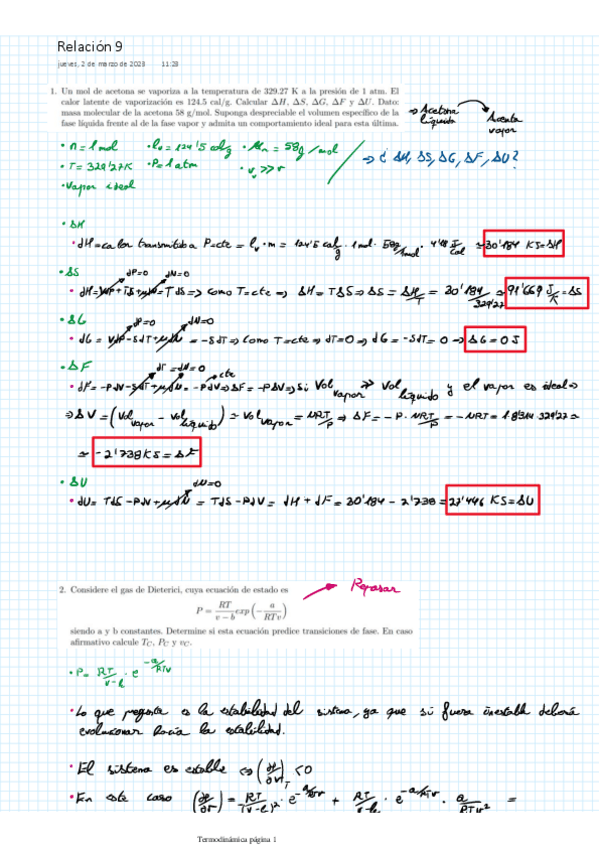 Relación 9
jueves, 2 de marzo de 2023 11:23
1. Un mol de acetona se vaporiza a la temperatura de 329.27 K a la presión de 1 atm. El
calor latente de vaporización es 124.5 cal/g. Calcular ΔH, ΔS, ΔG, ΔF y ΔU. Dato:
masa molecular de la acetona 58 g/mol. Suponga despreciable el volumen específico de la
fase líquida frente al de la fase vapor y admita un comportamiento ideal para esta última.
→ Acetona líquida → Acetona vapor
• n = 1 mol • lv = 124'5 cal/g • Mn = 58 g/mol
• T = 329'27K • P = 1 atm • v_v >> v → ¿ΔH, ΔS, ΔG, ΔF, ΔU?
• Vapor ideal
• ΔH
• dH = calor transmitido a P=cte = lv · m = 124'5 cal/g · 1 mol · 58g/1mol · 4'18 J/cal ≃ 30'184 KJ = ΔH
• ΔS dP=0 dN=0
• dH = VdP + TdS + μdN = TdS => como T=cte => ΔH = TΔS => ΔS = ΔH/T = 30'184/329'27 ≃ 91'669 J/K = ΔS
• ΔG dP=0 dN=0
• dG = VdP - SdT + μdN = -SdT => Como T=cte => dT=0 => dG = -SdT = 0 => ΔG = 0 J
• ΔF dT = dN = 0
• dF = -PdV - SdT + μdN = -PdV => ΔF = -PΔV => Si Vol vapor >> Vol líquido y el vapor es ideal =>
cte
=> ΔV = (Vol vapor - Vol líquido) ≃ Vol vapor = NRT/P => ΔF = -P · NRT/P = -NRT = 1·8'314·329'27 ≃
≃ -2'738 KJ = ΔF
• ΔU dN=0
• dU = TdS - PdV + μdN = TdS - PdV = dH + dF = 30'184 - 2'738 = 27'446 KJ = ΔU
2. Considere el gas de Dieterici, cuya ecuación de estado es → Repasar
P = RT/(v − b) exp(−a/(RTv))
siendo a y b constantes. Determine si esta ecuación predice transiciones de fase. En caso
afirmativo calcule T_C, P_C y v_C.
• P = RT/(v-b) · e^(-a/RTv)
• Lo que pregunta es la estabilidad del sistema, ya que si fuera inestable debería
evolucionar hacia la estabilidad.
• El sistema es estable <=> (∂P/∂v)_T < 0
• En este caso (∂P/∂v) = RT/(v-b)² · e^(-a/RTv) + RT/v-b · e^(-a/RTv) · a/RTv² =
Termodinámica página 1